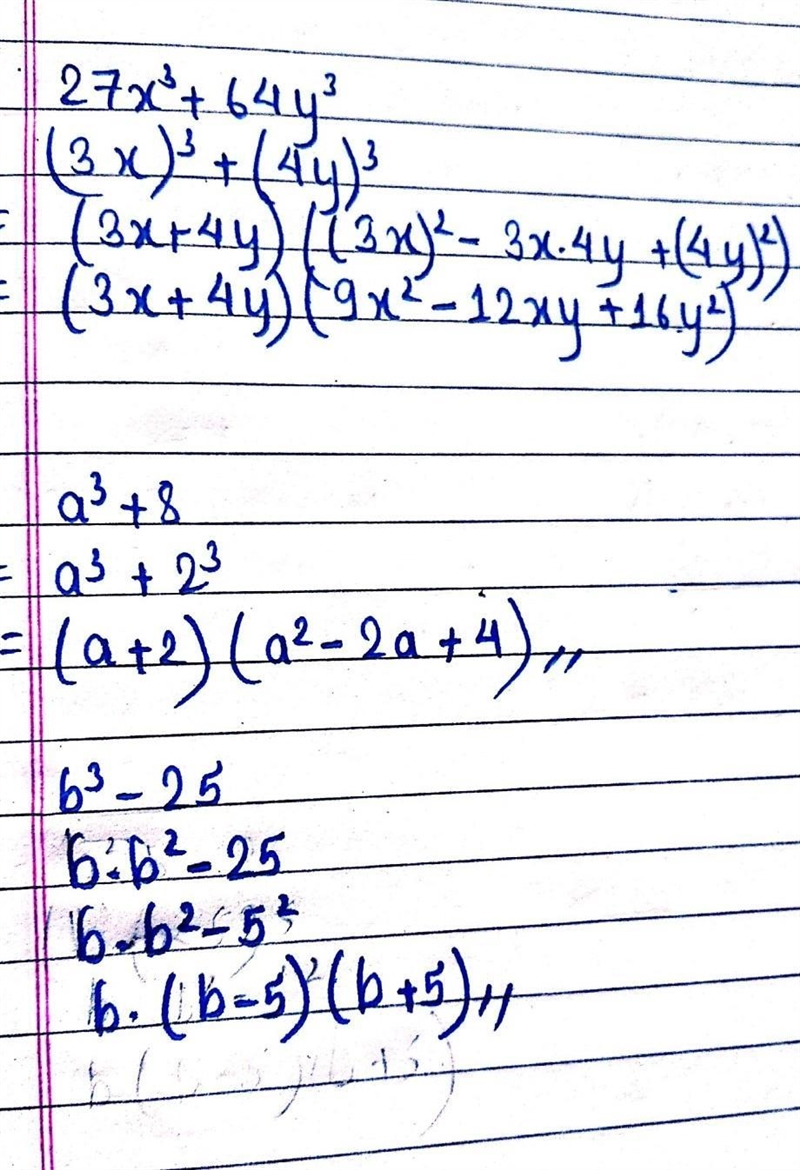 27x³ + 64y³
(3x)³ + (4y)³
= (3x+4y) ((3x)² - 3x·4y + (4y)²)
= (3x + 4y) (9x² - 12xy + 16y²)
a³ + 8
= a³ + 2³
= (a+2) (a² - 2a + 4) //
b³ - 25
b·b² - 25
b·b² - 5²
b· (b-5) (b+5) //